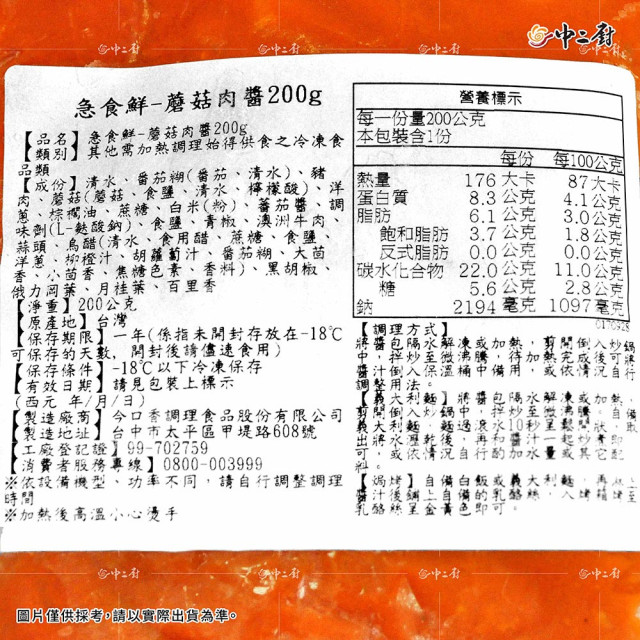 中二廚
急食鮮-蘑菇肉醬200g
【品名】急食鮮-蘑菇肉醬200g
【類別】其他需加熱調理始得供食之冷凍食
品類
【成份】清水、番茄糊(番茄、清水)、豬
肉、蘑菇(蘑菇、食鹽、清水、檸檬酸)、洋
蔥、棕櫚油、蔗糖、白米(粉)、蕃茄醬、調
味劑(L-麩酸鈉)、食鹽、青椒、澳洲牛肉、
蒜頭、烏醋(清水、食用醋、蔗糖、食鹽、
洋蔥、柳橙汁、胡蘿蔔汁、番茄糊、大茴
香、小茴香、焦糖色素、香料)、黑胡椒、
俄力岡葉、月桂葉、百里香
【淨重】200公克
【原產地】台灣
【保存期限】一年(係指未開封存放在-18℃
可保存的天數，開封後請儘速食用)
【保存條件】-18℃以下冷凍保存
【有效日期】請見包裝上標示
(西元 年/月/日)
【製造廠商】今口香調理食品股份有限公司
【製造地址】台中市太平區甲堤路608號
【工廠登記證】99-702759
【消費者服務專線】0800-003999
※依設備機型、功率不同，請自行調整調理
時間
※加熱後高溫小心燙手
營養標示
每一份量200公克
本包裝含1份
每份 每100公克
熱量 176 大卡 87大卡
蛋白質 8.3 公克 4.1公克
脂肪 6.1 公克 3.0公克
飽和脂肪 3.7 公克 1.8公克
反式脂肪 0.0 公克 0.0公克
碳水化合物 22.0 公克 11.0公克
糖 5.6 公克 2.8公克
鈉 2194 毫克 1097毫克
【調理方式】
圖片僅供採考，請以實際出貨為準。